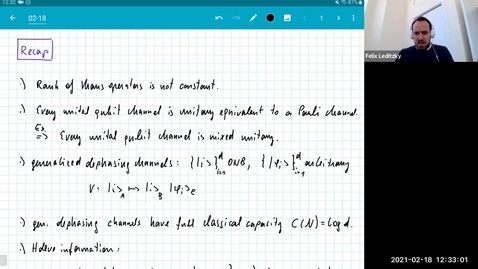 12:32
02-18
1
Recap
·) Rank of Kraus operators is not constant.
·) Every unital qubit channel is unitary equivalent to a Pauli channel.
Ex. ⇒ Every unital qubit channel is mixed unitary.
·) generalized dephasing channels: {|i>}ᵈᵢ₌₁ ONB, {|φᵢ>}ᵈᵢ₌₁ arbitrary
V: |i>_A ↦ |i>_B |φᵢ>_E
·) gen. dephasing channels have full classical capacity C(N) = log d.
·) Holevo information:
Felix Leditzky
2021-02-18 12:33:01